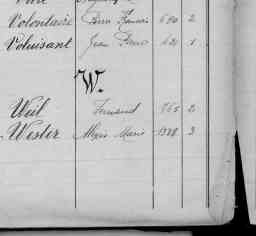 Volontaire Pierre François 680 2
Voluisant Jean Pierre 621 1
W.
Weil Fernand 765 2
Wester Alexis Marie 1328 3